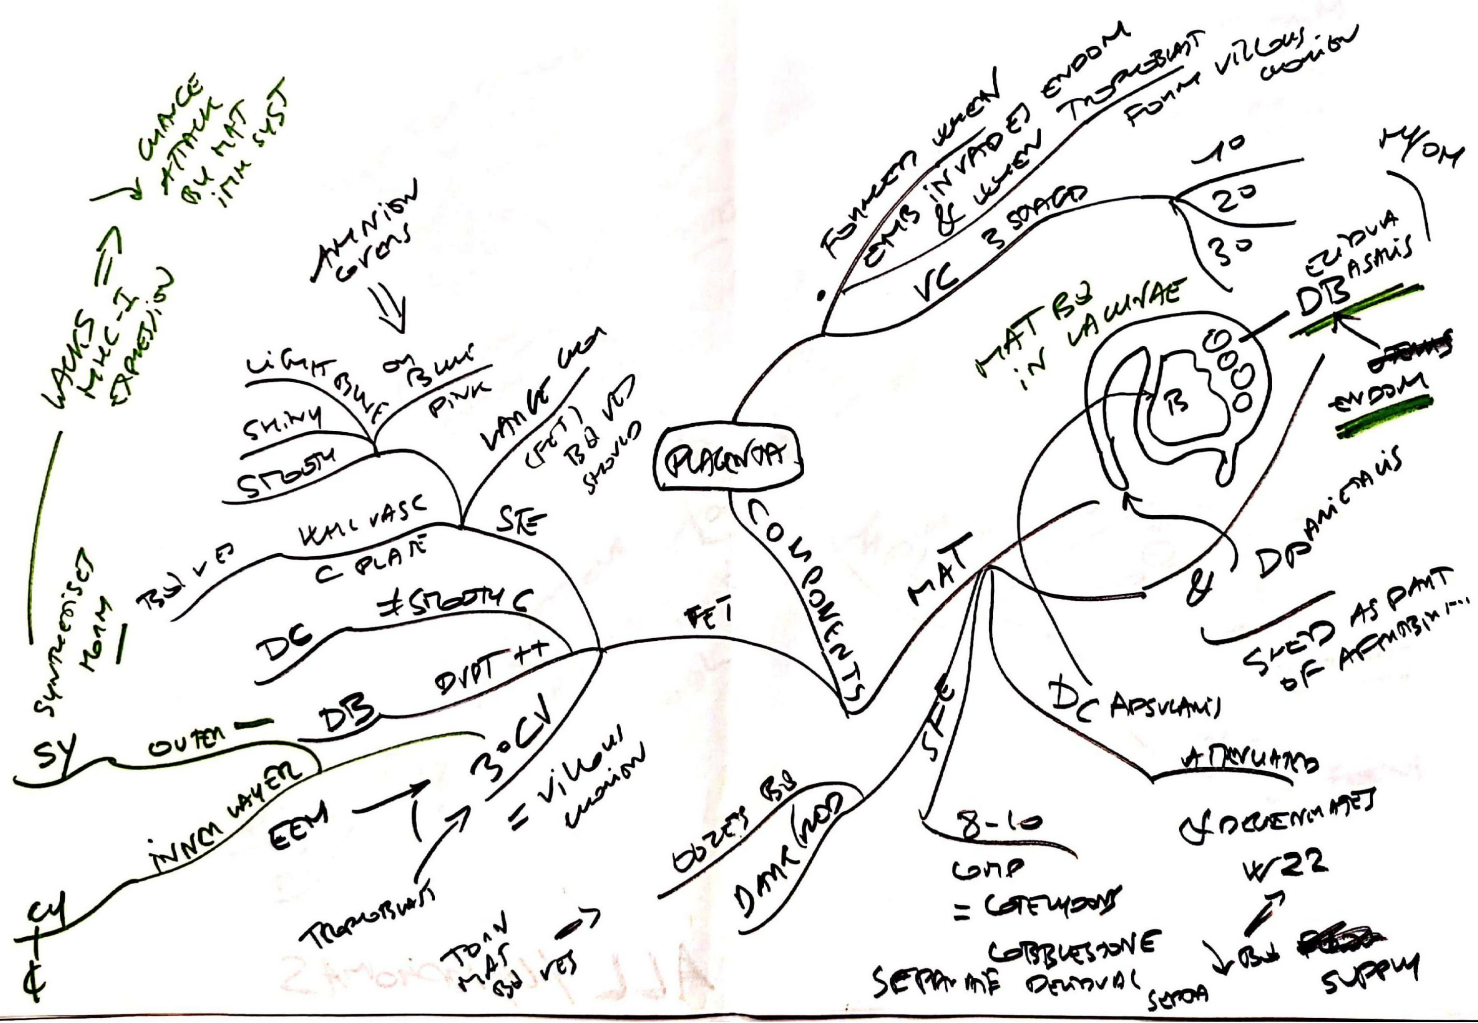 PLACENTA
FORMED WHEN
EMB INVADES ENDOM
& WHEN TROPHOBLAST
FORM VILLOUS
CHORION
VC 3 STAGES
10
20
30
M/OM
MAT BD
IN LACUNAE
B
DB
ECIDUA
BASALIS
ENDOM
DPARIETALIS
&
SHED AS PART
OF AFTERBIRTH...
COMPONENTS
MAT
DCAPSULARIS
ATTENUATED
& DEGENERATES
W22
↓ BD
SUPPLY
SFE
8-10
COMP
= COTELYDONS
COBBLESTONE
SEPARATE DECIDUAL
SEPTA
OOZES BD
DARK RED
TORN
MAT
BD VES
FET
STE
LARGE
(FET)
BD VES
SHOULD
AMNION
COVERS
LIGHT BLUE
OR
PINK
SHINY
SMOOTH
C PLATE
BD VES
≠ SMOOTH C
DC
DVPT ++
DB
3° CV
= VILLOUS
CHORION
EEM
TROPHOBLAST
INNER LAYER
CY
OUTER
SY
SYNTHESISES
HORM
LACKS
MHC-I
EXPRESSION
↓ CHANCE
ATTACK
BY MAT
IMM SYST